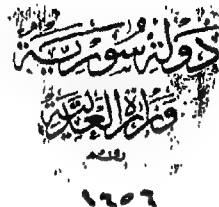 دولة سورية
وزارة العدلية
١٦٥٦